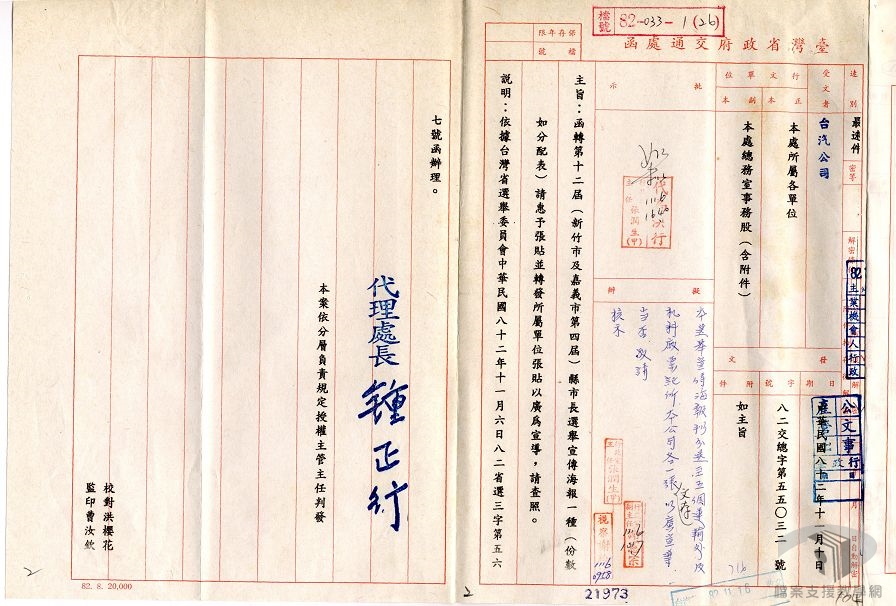 檔號 82-033-1(26)
保存年限
檔號
臺灣省政府交通處函
速別 最速件
密等
解密
受文者 台汽公司
行文單位
正本 本處所屬各單位
副本 本處總務室事務股（含附件）
發文
日期 中華民國八十二年十一月十日
字號 八二交總字第五五〇三二號
附件 如主旨
公文
82
批示
擬辦
主旨：函轉第十二屆（新竹市及嘉義市第四屆）縣市長選舉宣傳海報一種（份數
如分配表）請惠予張貼並轉發所屬單位張貼以廣為宣導，請查照。
說明：依據台灣省選舉委員會中華民國八十二年十一月六日八二省選三字第五六
21973
2
七號函辦理。
代理處長 鍾正行
本案依分層負責規定授權主管主任判發
校對洪櫻花
監印曹汝欽
82. 8. 20,000
2
檔案支援教學網